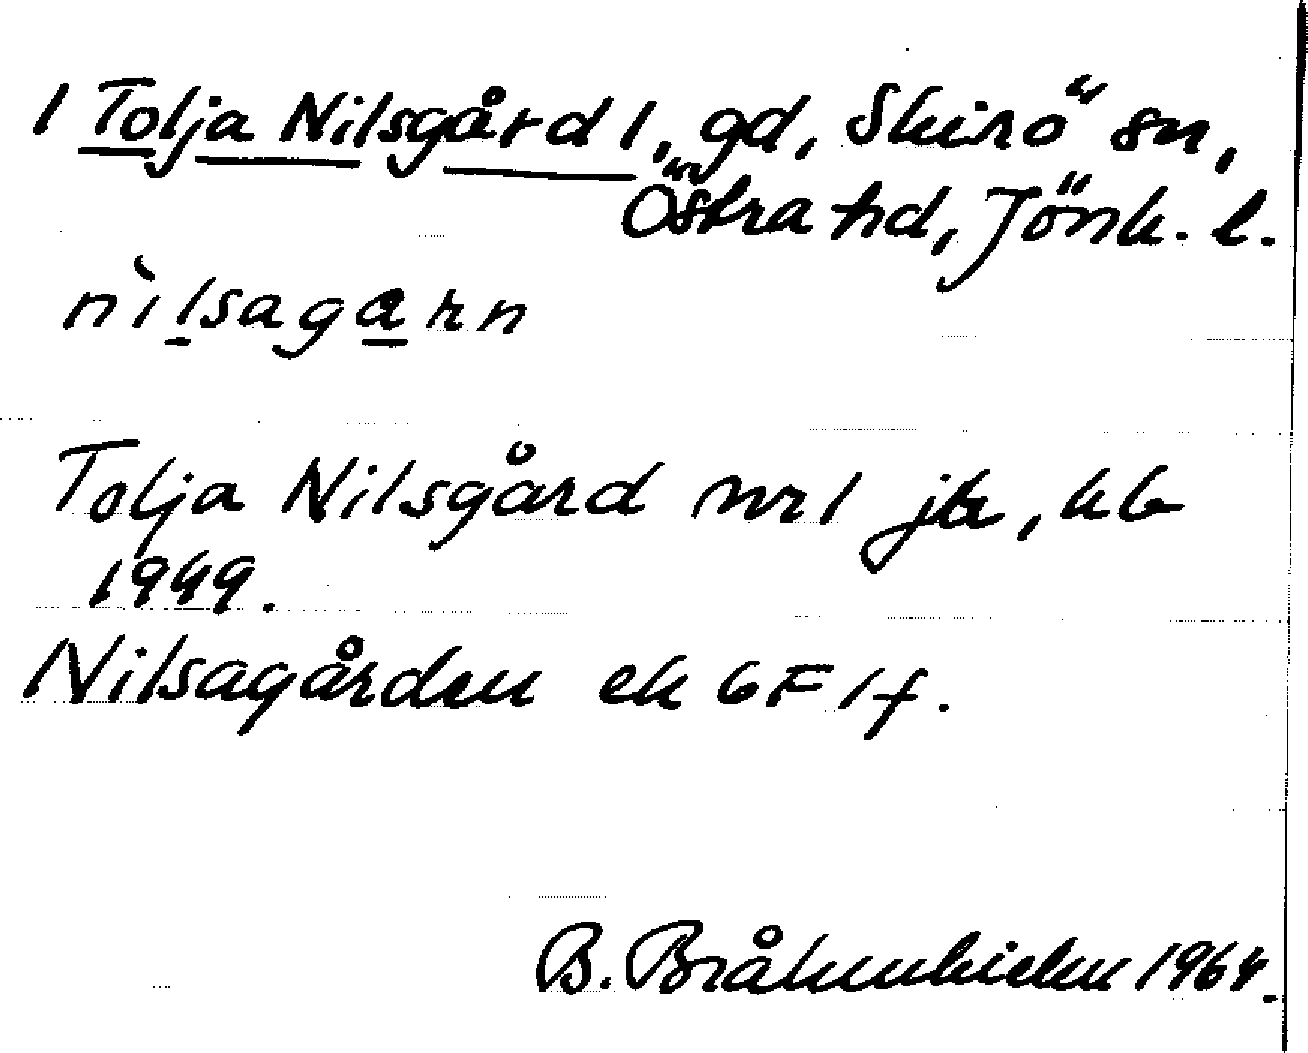 1 Tolja Nilsgård 1, gd, Skirö sn,
Östra hd, Jönk. l.
nìlsagarn
Tolja Nilsgård nr 1 jb, kb
1949.
Nilsagården ek 6F 1f.
B. 1964.